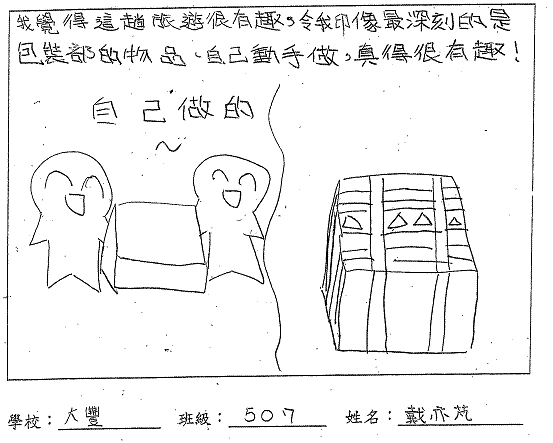 我覺得這趟旅遊很有趣。令我印像最深刻的是
包裝部的物品、自己動手做，真得很有趣！
自己做的
~
學校：大豐 班級：507 姓名：戴亦芃